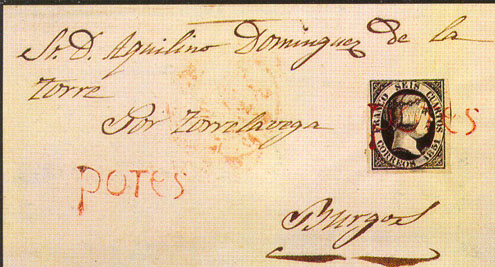 Sr. D. Aquilino Dominguez de la
Torre
Por Torrelavega
POTES
FRANCO SEIS CUARTOS
CORREOS 1851
POTES
Burgos